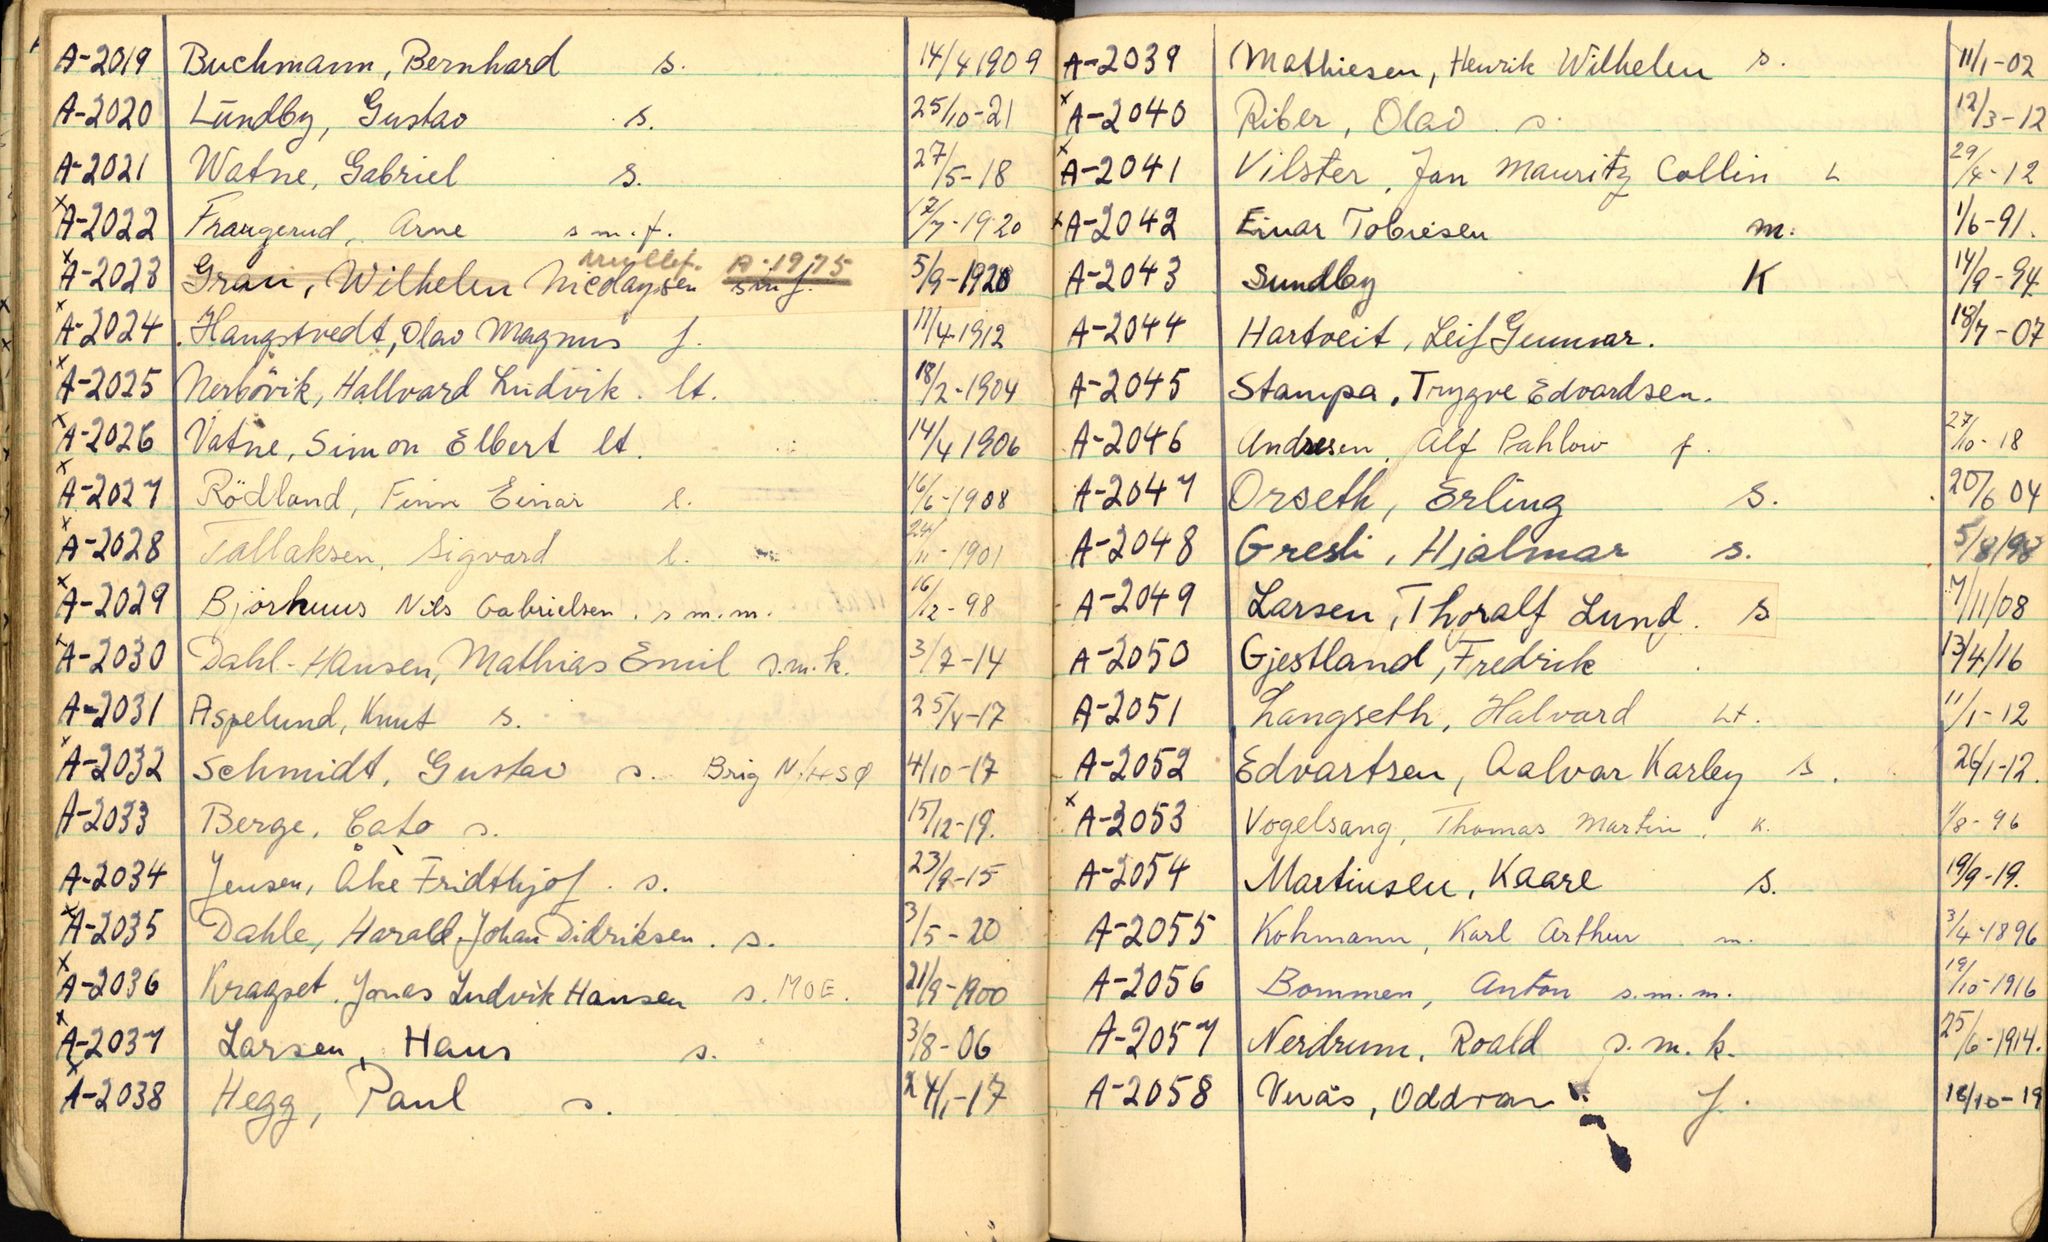 A-2019 Buchmann, Bernhard s. 14/4 1909
A-2020 Lundby, Gustav s. 25/10-21
A-2021 Watne, Gabriel s. 27/5-18
x A-2022 Frangerud, Arne s.m.f. 17/7-1920
x A-2023 Gran, Wilhelm Nicolaysen A-1975 5/9-1920
x A-2024 Haugstvedt, Olav Magnus f. 11/4 1912
x A-2025 Nerbövik, Hallvard Ludvik. lt. 18/2-1904
x A-2026 Vatne, Simon Elbert lt. 14/4 1906
x A-2027 Rödland, Finn Einar l. 16/6-1908
x A-2028 Tallaksen, Sigvard l. 24/11-1901
x A-2029 Bjorhuus Nils Gabrielsen. s m.m. 16/12-98
x A-2030 Dahl-Hansen, Mathias Emil s.m.k. 3/7-14
A-2031 Aspelund, Knut s. 25/4-17
x A-2032 Schmidt, Gustav s. Brig N/HSØ 4/10-17
A-2033 Berge, Cato s. 15/12-19.
A-2034 Jensen, Åke Fridthjof. s. 23/9-15
x A-2035 Dahle, Harald Johan Didriksen. s. 3/5-20
x A-2036 Kragset. Jonas Ludvik Hansen s. MOE. 21/9-1900
x A-2037 Larsen, Hans s. 3/8-06
x A-2038 Hegg, Paul s. 24/1-17
A-2039 Mathiesen, Henrik Wilhelm s. 11/1-02
x A-2040 Riber, Olav s. 12/3-12
x A-2041 Vilster, Jan Mauritz Collin L 29/4-12
x A-2042 Einar Tobiesen m. 1/6-91.
A-2043 Sundby K 14/9-94
A-2044 Hartveit, Leif Gunnar. 18/7-07
A-2045 Stampa, Trygve Edvardsen.
A-2046 Andresen, Alf Pahlow f. 27/10-18
A-2047 Orseth, Erling S. 20/6 04
A-2048 Gresli, Hjalmar s. 5/8/98
A-2049 Larsen, Thoralf Lund. s 7/11/08
A-2050 Gjestland, Fredrik 13/4/16
A-2051 Langseth, Halvard Lt. 11/1-12
A-2052 Edvartsen, Aalvar Karley s. 26/1-12.
x A-2053 Vogelsang, Thomas Martin, K. 1/8-96
A-2054 Martinsen, Kaare s. 19/9-19.
A-2055 Kohmann, Karl Arthur m. 3/4-1896
A-2056 Bommen, Anton s.m.m. 19/10-1916
A-2057 Nerdrum, Roald s.m.k. 25/6-1914.
A-2058 Verås, Oddvar f. 18/10-19